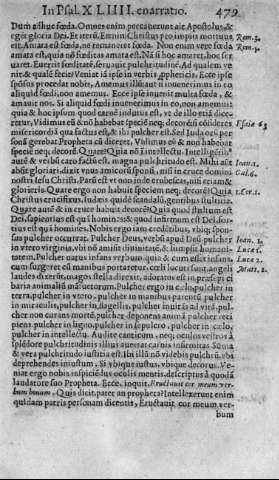 In Psal. XLIIII. enarratio. 479
Dum adhuc fœda. Omnes enim peccauerunt ait Apostolus, &
egēt gloria Dei. Et iterū, Etenim Christus pro impijs mortuus Rom.3.
est. Amata est fœda, ne remaneret fœda. Non enim vere fœda Rom.5.
amata est, quia nō fœditas amata est. Nā si hoc amaret, hoc ser
uaret. Euertit fœditatē, formauit pulchritudinē. Ad qualem ve
nit? & qualē fecit? Veniat iā ipse in verbis propheticis. Ecce ipse
spōsus procedat nobis, Amemus illū: aut si inuenerimus in eo
aliquid fœdi, non amemus. Ecce ipse inuenit multa fœda, &
amauit nos. Si aliquid fœdi inuenerimus in eo, non amemus:
quia & hoc ipsum quod carne indutus est, vt de illo etiā dice
retur, Vidimus eū & nō habebat speciē neq; decorē: si cōsideres Esaiæ 53
misericordiā qua factus est, & ibi pulcher est. Sed Iudæorū per
sonā gerebat Propheta cū diceret, Vidimus eū & nō habebat
speciē neq; decorē. Quare? Quia nō intellectu. Intelligētibus
autē & verbū caro factū est, magna pulchritudo est. Mihi autē Ioan.1.
absit gloriari, dixit vnus amicorū sponsi, nisi in cruce domini Gal.6.
nostri Iesu Christi. Parū est vt non inde erubescas, nisi etiam &
glorieris. Quare ergo non habuit speciem neq; decorē? Quia 1.Cor.1.
Christus crucifixus, Iudæis quidē scandalū, gentibus stultitia.
Quare autē & in cruce habebat decorē? Quia quod stultum est
Dei, sapientius est quā hominibus: & quod infirmum est Dei, for
tius est quā homines. Nobis ergo iam credētibus, vbiq; spon-
sus pulcher occurrat. Pulcher Deus, verbū apud Deū: pulcher Ioan. 1.
in vtero virginis, vbi nō amisit diuinitatē, & sumpsit humani- Luca 1.
tatem. Pulcher natus infans verbum: quia & cum esset infans, Luca 2.
cum sugeret cū manibus portaretur, cœli locuti sunt, angeli
laudes dixerūt, magos stella direxit, adoratus est in præsepi ci Matt. 2.
baria animaliū mansuetorum. Pulcher ergo in cœlo, pulcher in
terra, pulcher in vtero, pulcher in manibus parentū: pulcher
in miraculis, pulcher in flagellis, pulcher inuitās ad vitā, pul-
cher non curans mortē, pulcher deponens animā, pulcher reci
piens, pulcher in ligno, pulcher in sepulcro, pulcher in cœlo,
pulcher in intellectu. Audite canticum, neq; oculos vestros à
splēdore pulchritudinis illius auertat carnis infirmitas. Sūma
& vera pulchritudo iustitia est. Ibi illū nō videbis pulchrū, vbi
deprehendes iniustum. Si vbique iustus, vbique decorus. Ve-
niat ergo nobis inspiciēdus oculis mentis, descriptus à quodā
laudatore suo Propheta. Ecce, inquit, Eructauit cor meum ver-
bum bonum. Quis dicit, pater an propheta? Intellexerunt enim
quidam patris personam dicentis, Eructauit cor meum ver-
bum